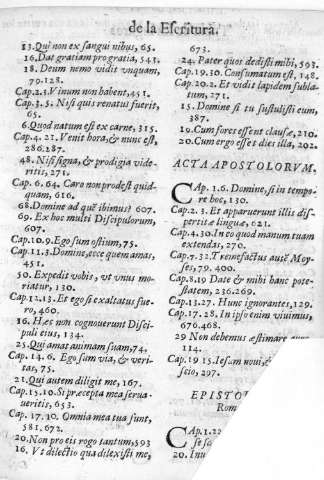 de la Escritura.
13. Qui non ex sangui nibus, 65.
16. Dat gratiam pro gratia, 541.
18. Deum nemo vidit vnquam,
79. 128.
Cap. 2. 3. Vinum non habent, 451.
Cap. 3. 5. Nisi quis renatus fuerit,
65.
6. Quod natum est ex carne, 315.
Cap. 4. 21. Venit hora, & nunc est,
286. 287.
48. Nisi signa, & prodigia vide-
ritis, 271.
Cap. 6. 64. Caro non prodest quid-
quam, 616.
68. Domine ad quẽ ibimus? 607.
69. Ex hoc multi Discipulorum,
607.
Cap. 10. 9. Ego sum ostium, 75.
Cap. 11. 3. Domine, ecce quem amas,
451.
50. Expedit vobis, vt vnus mo-
riatur, 130.
Cap. 12. 13. Et ego si exaltatus fue-
ro, 460.
16. Hæc non cognouerunt Disci-
puli eius, 134.
25. Qui amat animam suam, 74.
Cap. 14. 6. Ego sum via, & veri-
tas, 75.
21. Qui autem diligit me, 167.
Cap. 15. 10. Si præcepta mea serua-
ueritis, 653.
Cap. 17. 10. Omnia mea tua sunt,
581. 672.
20. Non pro eis rogo tantum, 593
16. Vt dilectio qua dilexisti me,
673.
24. Pater quos dedisti mihi, 593.
Cap. 19. 30. Consumatum est, 148.
Cap. 20. 2. Et vidit lapidem subla-
tum, 271.
15. Domine si tu sustulisti eum,
387.
19. Cum fores essent clausæ, 210.
20. Cum ergo esset dies illa, 202.
ACTA APOSTOLORVM.
CAp. 1. 6. Domine, si in tempo-
re hoc, 130.
Cap. 2. 3. Et apparuerunt illis dis-
pertitæ linguæ, 621.
Cap. 4. 30. In eo quod manum tuam
extendas, 270.
Cap. 7. 32. Tremefactus autẽ Moy-
ses, 79. 400.
Cap. 8. 19 Date & mihi hanc pote-
statem, 236. 269.
Cap. 13. 27. Hunc ignorantes, 129.
Cap. 17. 28. In ipso enim viuimus,
676. 468.
29 Non debemus æstimare
114.
Cap. 19 15. Iesum noui, &
scio, 297.
EPISTOL
Rom
CAp. 1. 22
se sa
20. Inu